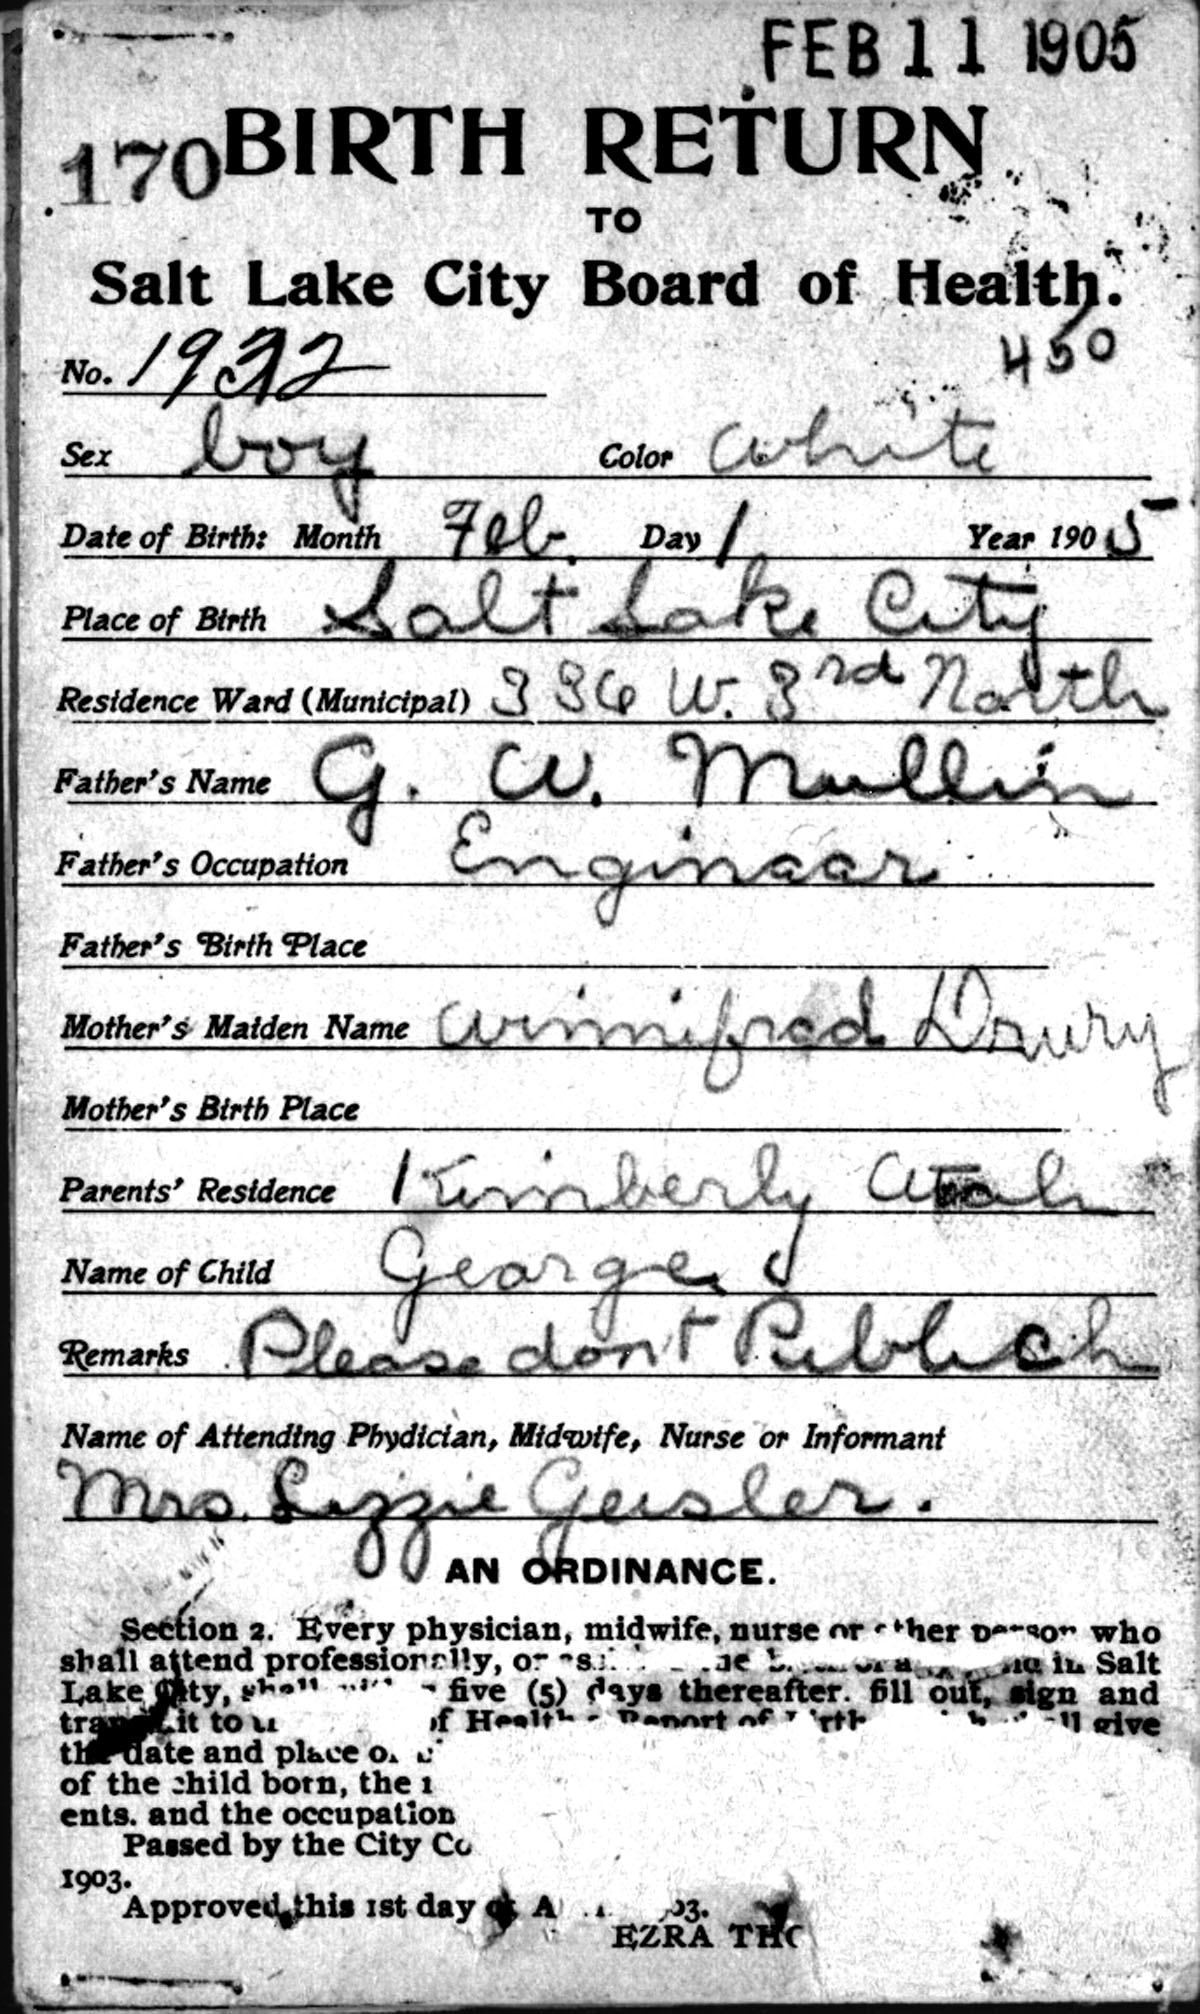 FEB 11 1905
170 BIRTH RETURN
TO
Salt Lake City Board of Health.
450
No. 1932
Sex boy Color White
Date of Birth: Month Feb. Day 1 Year 1905
Place of Birth Salt Lake City
Residence Ward (Municipal) 336 W. 3rd North
Father's Name G. W. Mullin
Father's Occupation Engineer
Father's Birth Place
Mother's Maiden Name Winnifred Drury
Mother's Birth Place
Parents' Residence Kimberly Utah
Name of Child George
Remarks Please dont Publish
Name of Attending Phydician, Midwife, Nurse or Informant
Mrs. Lizzie Geisler.
AN ORDINANCE.
Section 2. Every physician, midwife, nurse or other person who
shall attend professionally, or in Salt
Lake City, shall five (5) days thereafter. fill out, sign and
to of Health Report of give
the date and place
of the child born, the
ents. and the occupation
Passed by the City
1903.
Approved this 1st day
EZRA